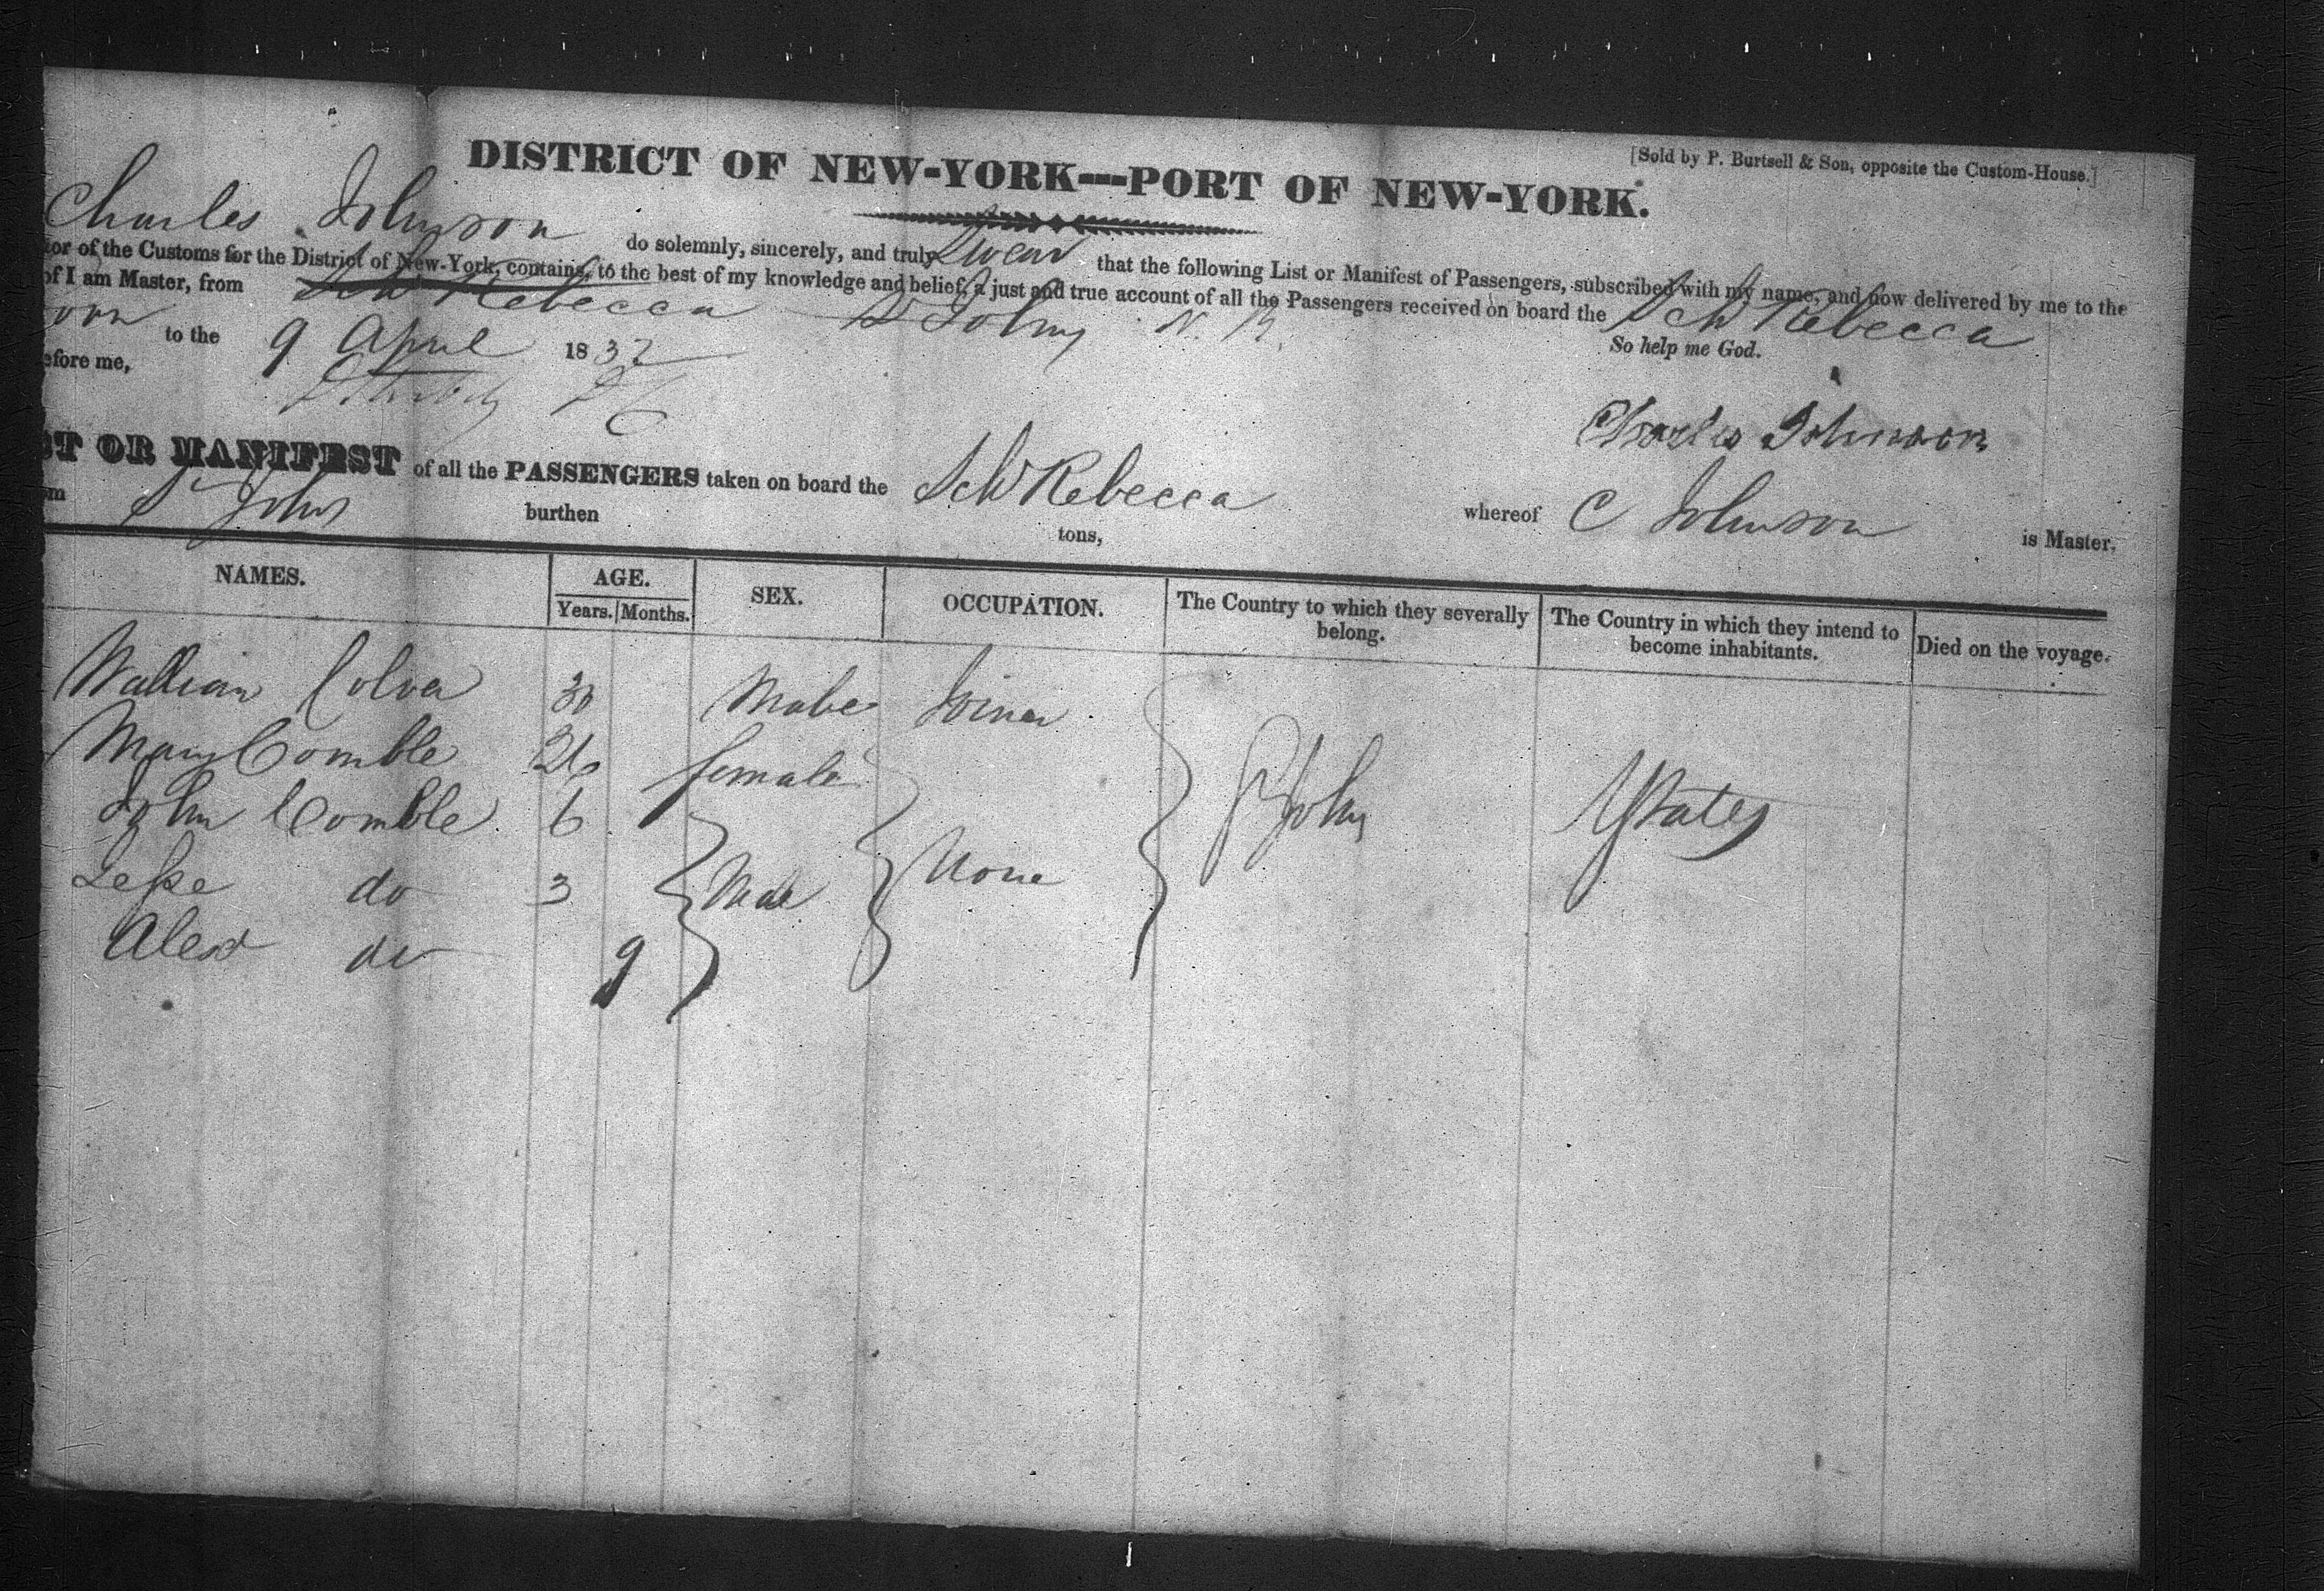 [Sold by P. Burtsell & Son, opposite the Custom-House.]
DISTRICT OF NEW-YORK---PORT OF NEW-YORK.
Charles Johnson do solemnly, sincerely, and truly Swear that the following List or Manifest of Passengers, subscribed with my name, and now delivered by me to the
tor of the Customs for the District of New-York, contains, to the best of my knowledge and belief, a just and true account of all the Passengers received on board the Sch Rebecca
of I am Master, from Sch Rebecca St Johns N. B.
orn to the 9 April 1832 So help me God.
efore me,
Charles Johnson
ST OR MANIFEST of all the PASSENGERS taken on board the Sch Rebecca whereof C Johnson is Master,
om St Johns burthen tons,
NAMES. AGE. SEX. OCCUPATION. The Country to which they severally belong. The Country in which they intend to become inhabitants. Died on the voyage.
Years. Months.
William 30 Male Joiner
Mary Comble 26 female
John Comble 6 St Johns UStates
do 3 Male None
Alexr do 9